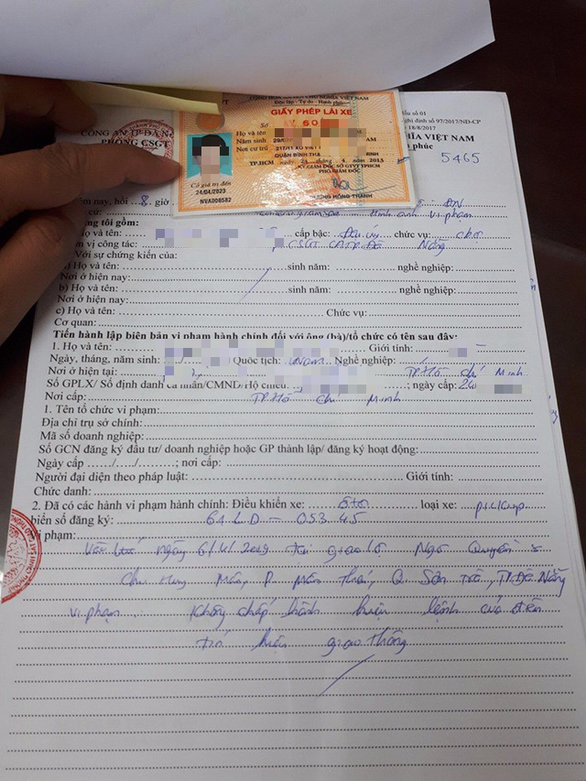 CỘNG HÒA XÃ HỘI CHỦ NGHĨA VIỆT NAM
Độc lập - Tự do - Hạnh phúc
GIẤY PHÉP LÁI XE
Số 60
Họ và tên
Năm sinh
Nơi cư trú
QUẬN BÌNH THẠ
TP.HCM 24 4
KT.GIÁM ĐỐC SỞ GTVT TPHCM
PHÓ GIÁM ĐỐC
Có giá trị đến
24/04/2023
CÔNG AN TP ĐÀ N
PHÒNG CSGT
ẫu số 01
ghị định số 97/2017/NĐ-CP
18/8/2017
HĨA VIỆT NAM
phúc
5465
nay, hồi 8 giờ ĐN
vi phạm
úng tôi gồm:
Họ và tên: cấp bậc: chức vụ:
n vị công tác: CSGT CATP Đà Nẵng
Với sự chứng kiến của:
a) Họ và tên: sinh năm: nghề nghiệp:
Nơi ở hiện nay:
b) Họ và tên: sinh năm: nghề nghiệp:
Nơi ở hiện nay:
c) Họ và tên: Chức vụ:
Cơ quan:
Tiến hành lập biên bản vi phạm hành chính đối với ông (bà)/tổ chức có tên sau đây:
1. Họ và tên: Giới tính:
Ngày, tháng, năm sinh: Quốc tịch: Nghề nghiệp:
Nơi ở hiện tại: TP.Hồ Chí Minh
Số GPLX/ Số định danh cá nhân/CMND/Hộ chiếu: ; ngày cấp: 24
Nơi cấp: TP.Hồ Chí Minh
1. Tên tổ chức vi phạm:
Địa chỉ trụ sở chính:
Mã số doanh nghiệp:
Số GCN đăng ký đầu tư/ doanh nghiệp hoặc GP thành lập/ đăng ký hoạt động:
Ngày cấp ..../..../.........; nơi cấp:
Người đại diện theo pháp luật: Giới tính:
Chức danh:
2. Đã có các hành vi phạm hành chính: Điều khiển xe: ôtô loại xe: pickup
biển số đăng ký: 61LD - 053.45
Vi phạm:
ngày 6/4/2019 tại giao lộ Ngô Quyền &
Chu Huy Mân, P. Mân Thái, Q. Sơn Trà, TP.Đà Nẵng
vi phạm: Không chấp hành hiệu lệnh của đèn
tín hiệu giao thông